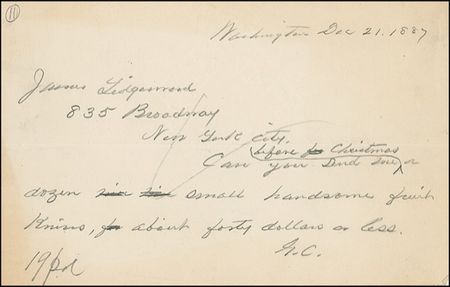 11
Washington Dec 21. 1887
James Lidgerwood
835 Broadway
New York City.
before for Christmas
Can you send me a
dozen small handsome fruit
Knives, for about forty dollars or less.
G.C.
19 pd